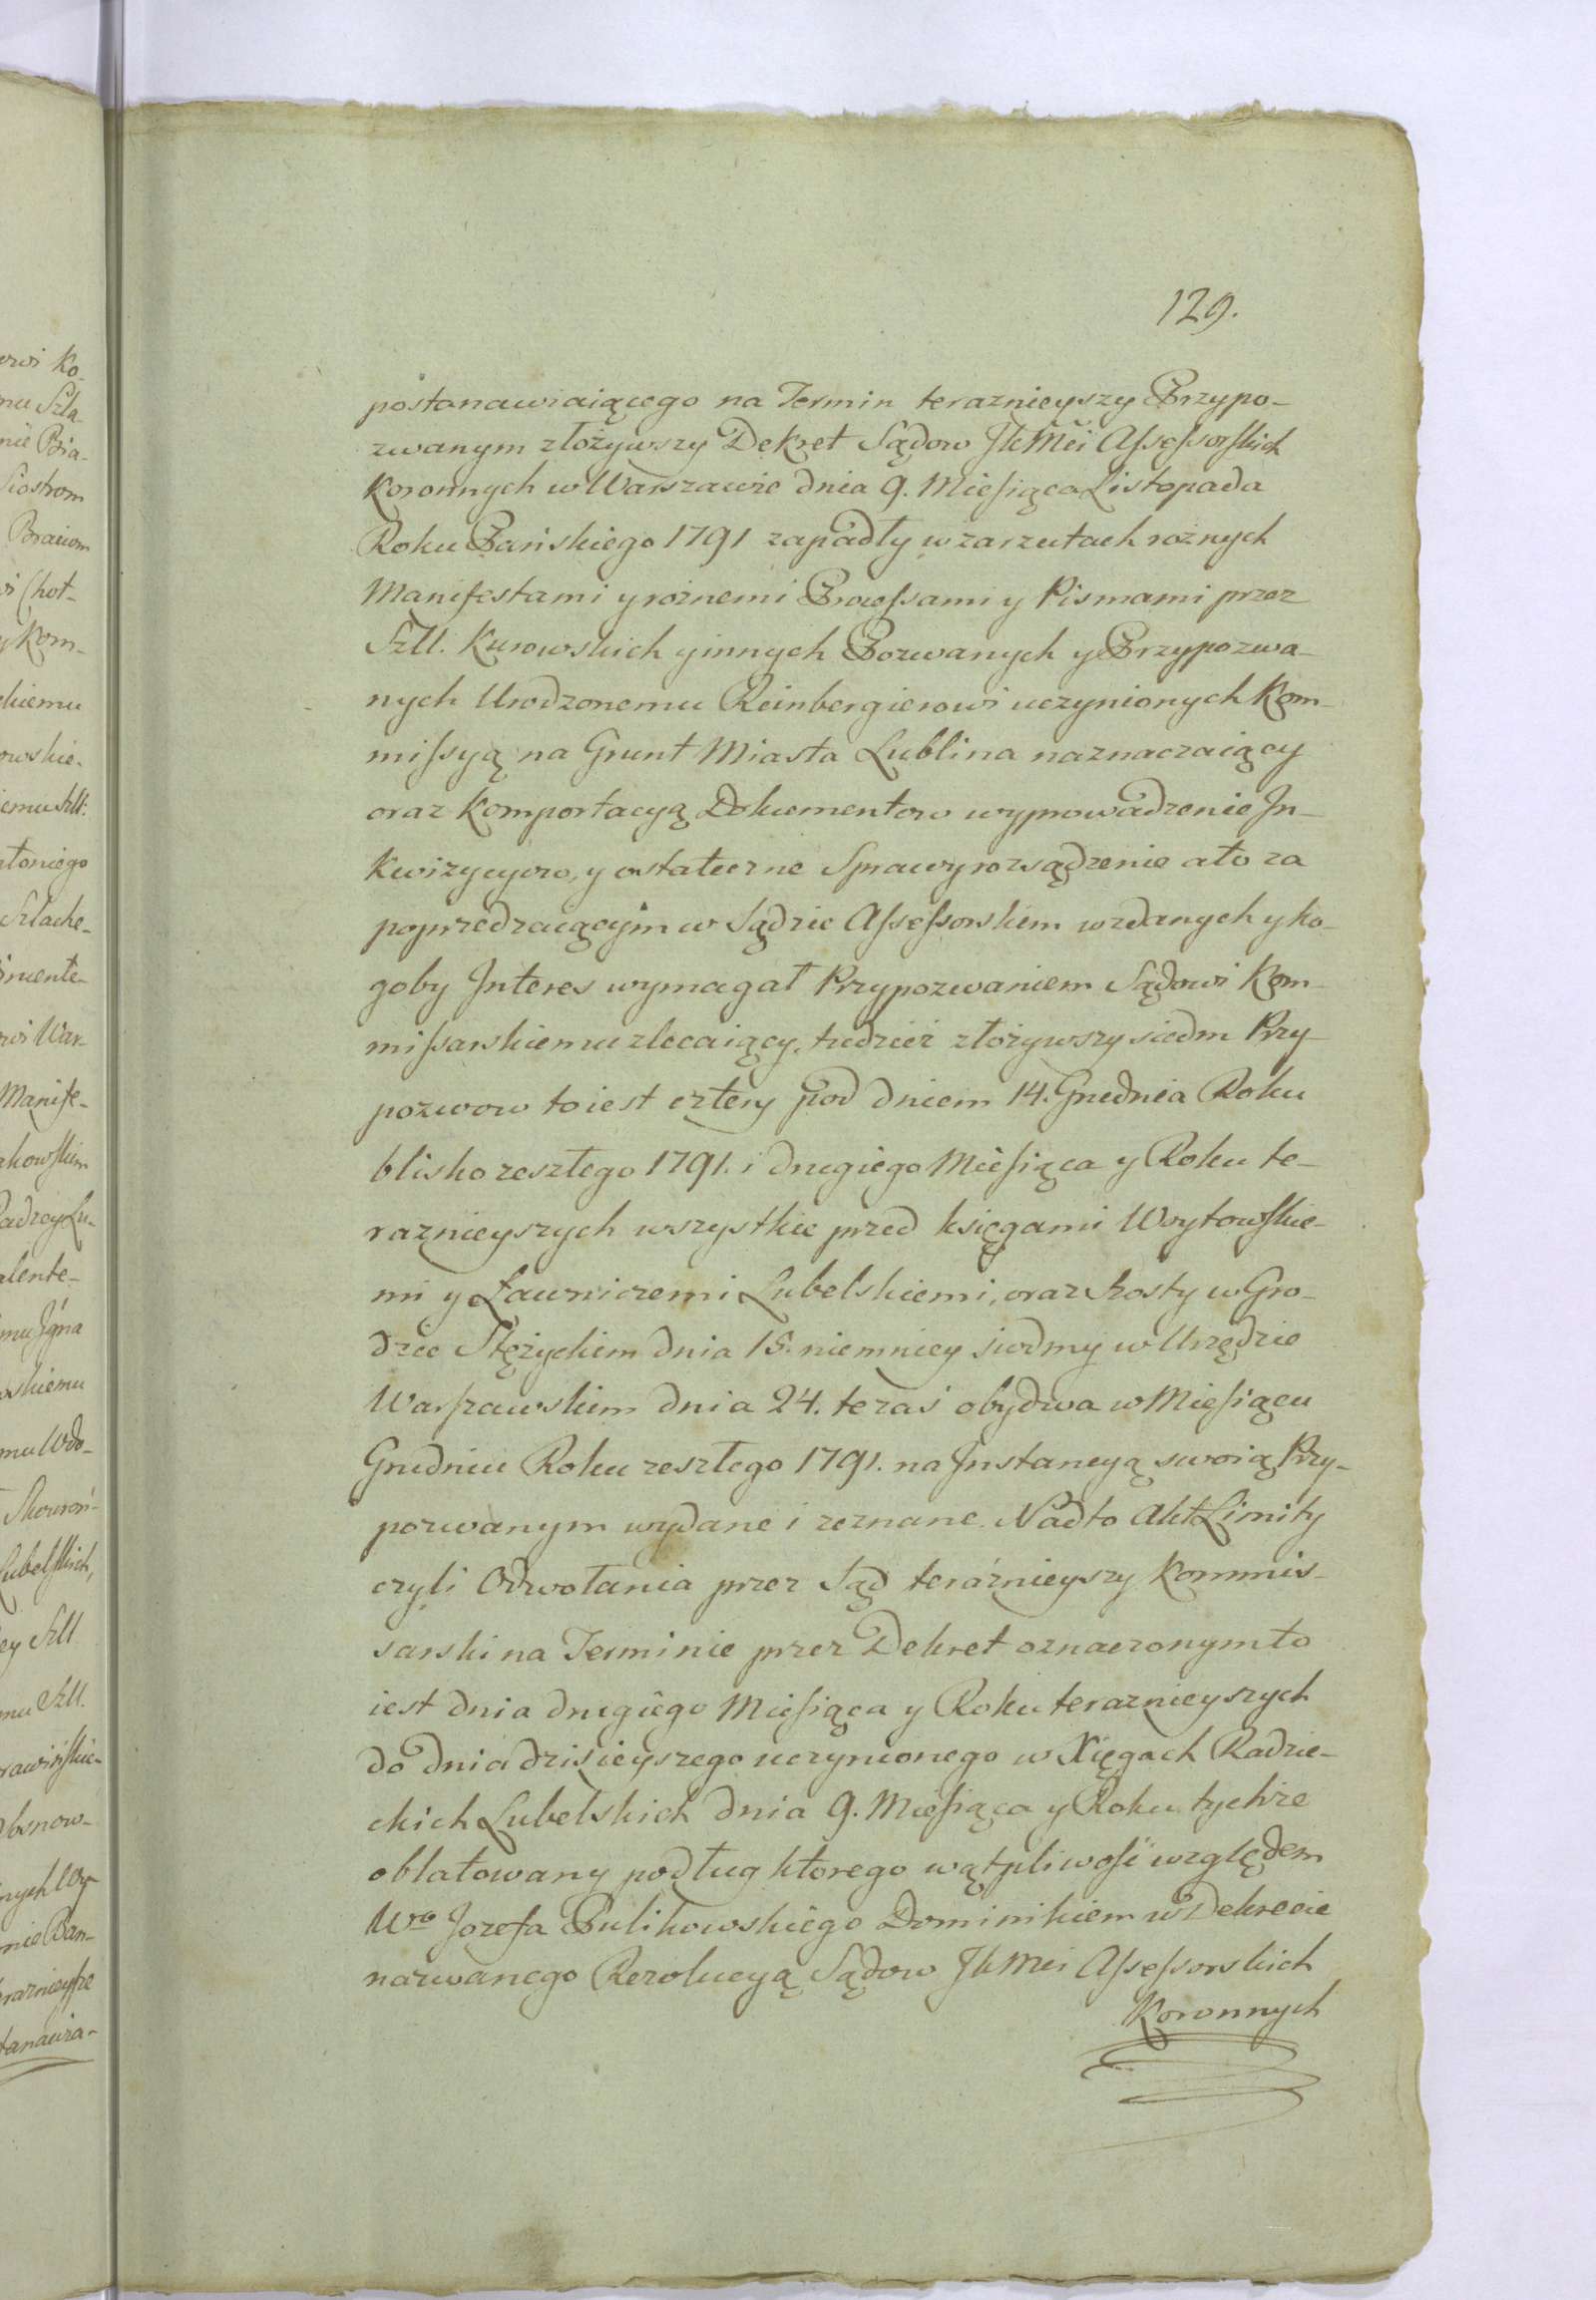 129.
postanawiaiącego na Termin teraznieyszy Przypo-
zwanym złożywszy Dekret Sądow JkMci Assessorskich
Koronnych w Warszawie dnia 9. Miesiąca Listopada
Roku Pańskiego 1791 zapadły w zarzutach rożnych
Manifestami y rożnemi Processami y Pismami przez
Szll. Kurowskich y innych Pozwanych y Przypozwa-
nych Urodzonemu Reinbergierowi uczynionych Kom-
missyą na Grunt Miasta Lublina naznaczaiący
oraz Komportacyą Dokumentow wyprowadzenie In-
kwizycyow, y ostateczne Sprawy rozsądzenie a to za
poprzedzaiącym w Sądzie Assessorskiem wzdanych y ko-
goby Interes wymagał Przypozwaniem Sądowi Kom-
missarskiemu zlecaiący, tudzież złożywszy siedm Przy-
pozwow to iest cztery pod dniem 14. Grudnia Roku
blisko zeszłego 1791. i drugiego Miesiąca y Roku te-
raznieyszych wszystkie przed księgami Woytowskie-
mi y Ławniczemi Lubelskiemi, oraz szosty w Gro-
dzie Stężyckiem dnia 15. niemniey siodmy w Urzędzie
Warszawskim dnia 24. teraś obydwa w Miesiącu
Grudniu Roku zeszłego 1791. na Instancyą swoią Przy-
pozwanym wydane i zeznane. Nadto Akt Limity
czyli Odwołania przez Sąd teraźnieyszy Kommis-
sarski na Terminie przez Dekret oznaczonym to
iest dnia drugiego Miesiąca y Roku teraznieyszych
do dnia dzisieyszego uczynionego w Xięgach Radzie-
ckich Lubelskich dnia 9. Miesiąca y Roku tychże
oblatowany podług ktorego wątpliwość względem
Wgo Jozefa Pulikowskiego Dominikiem w Dekrecie
nazwanego Rezolucyą Sądow JkMci Assessorskich
Koronnych